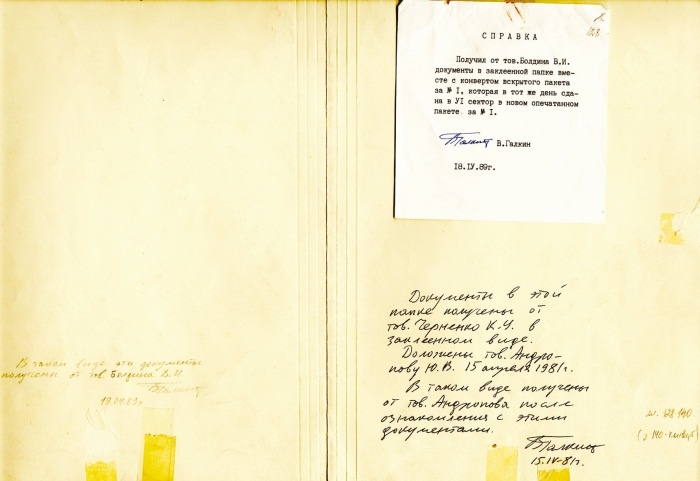 В таком виде эти документы
получены от тов. Болдина В.И.
Галкин
18.04.89г.
128
СПРАВКА
Получил от тов.Болдина В.И.
документы в заклеенной папке вме-
сте с конвертом вскрытого пакета
за № I, которая в тот же день сда-
на в УI сектор в новом опечатанном
пакете за № I.
Галкин В.Галкин
18.IУ.89г.
Документы в этой
папке получены от
тов. Черненко К.У. в
заклеенном виде.
Доложены тов. Андро-
пову Ю.В. 15 апреля 1981г.
В таком виде получены
от тов. Андропова после
ознакомления с этими
документами.
Галкин
15.IV-81г.
128-140